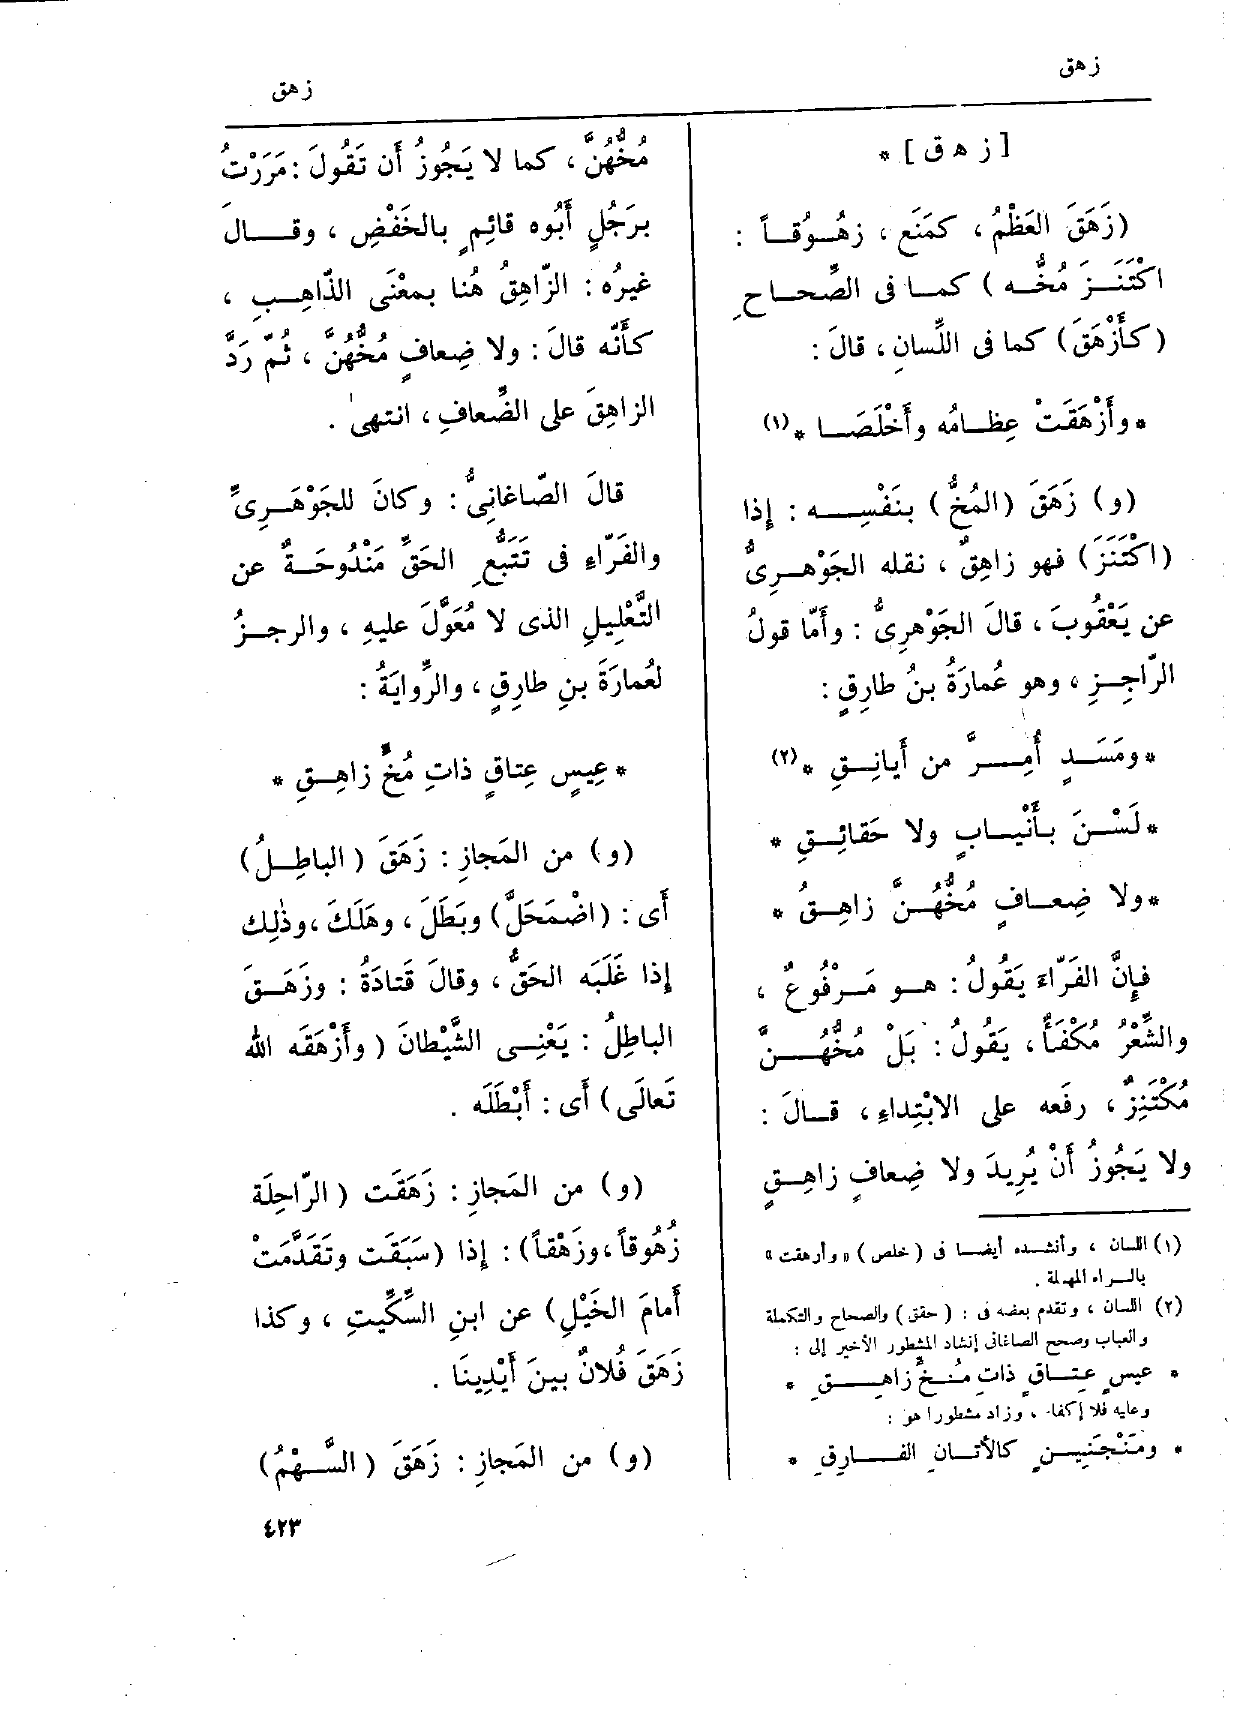 زهق
زهق
[ ز ه ق ] *
(زَهَقَ العَظْمُ ، كمَنَع ، زهُوُقاً :
اكْتَنَزَ مُخُّه ) كما فى الصِّحاحِ
(كأَزْهَقَ) كما فى اللِّسانِ ، قالَ :
* وأَزْهَقَتْ عِظامُه وأَخْلَصَا * (١)
(و) زَهَقَ (المُخُّ) بنَفْسِه : إِذا
(اكْتَنَزَ) فهو زاهِقٌ ، نقله الجَوْهرِىُّ
عن يَعْقُوبَ ، قالَ الجَوْهرِىُّ : وأَمّا قولُ
الرّاجِزِ ، وهو عُمارَةُ بنُ طارِقٍ :
* ومَسَدٍ أُمِرَّ من أَيانِقِ * (٢)
* لَسْنَ بأَنْيابٍ ولا حَقائِقِ *
* ولا ضِعافٍ مُخُّهُنَّ زاهِقُ *
فإِنَّ الفَرّاءَ يَقُولُ : هو مَرْفُوعٌ ،
والشِّعْرُ مُكْفَأٌ ، يَقُولُ : بَلْ مُخُّهُنَّ
مُكْتَنِزٌ ، رفَعه على الابْتِداءِ ، قالَ :
ولا يَجُوزُ أَنْ يُرِيدَ ولا ضِعافٍ زاهِقٍ
(١) اللسان ، وأنشده أيضا فى ( خلص ) « وأرهقت »
بالراء المهملة .
(٢) اللسان ، وتقدم بعضه فى : ( حقق ) والصحاح والتكملة
والعباب وصحح الصاغانى إنشاد المشطور الأخير إلى :
* عيسٍ عِتاقٍ ذاتِ مُخٍّ زاهِقِ *
وعليه فلا إكفاء ، وزاد مشطورا هو :
* ومَنْجَنِينٍ كالأتانِ الفارِقِ *
مُخُّهُنَّ ، كما لا يَجُوزُ أَن تَقُولَ : مَرَرْتُ
برَجُلٍ أَبُوه قائِمٍ بالخَفْضِ ، وقالَ
غيرُه : الزّاهِقُ هُنا بمعْنَى الذّاهِبِ ،
كأَنَّه قالَ : ولا ضِعافٍ مُخُّهُنَّ ، ثُمّ رَدَّ
الزاهِقَ على الضِّعافِ ، انتهىٰ .
قالَ الصّاغانِىُّ : وكانَ للجَوْهَرِىِّ
والفَرّاءِ فى تَتَبُّعِ الحَقِّ مَنْدُوحَةٌ عن
التَّعْلِيلِ الذى لا مُعَوَّلَ عليهِ ، والرجزُ
لعُمارَةَ بنِ طارِقٍ ، والرِّوايَةُ :
* عِيسٍ عِتاقٍ ذاتِ مُخٍّ زاهِقِ *
(و) من المَجازِ : زَهَقَ ( الباطِلُ )
أَى : (اضْمَحَلَّ) وبَطَلَ ، وهَلَكَ ، وذٰلِك
إِذا غَلَبَه الحَقُّ ، وقالَ قَتادَةُ : وزَهَقَ
الباطِلُ : يَعْنِى الشَّيْطانَ ( وأَزْهَقَه الله
تَعالَى) أَى : أَبْطَلَه .
(و) من المَجازِ : زَهَقَت ( الرّاحِلَة
زُهُوقاً ، وزَهْقاً ) : إِذا (سَبَقَت وتَقَدَّمَتْ
أَمامَ الخَيْلِ) عن ابنِ السِّكِّيتِ ، وكذا
زَهَقَ فُلانٌ بينَ أَيْدِينَا .
(و) من المَجازِ : زَهَقَ ( السَّهْمُ )
٤٢٣